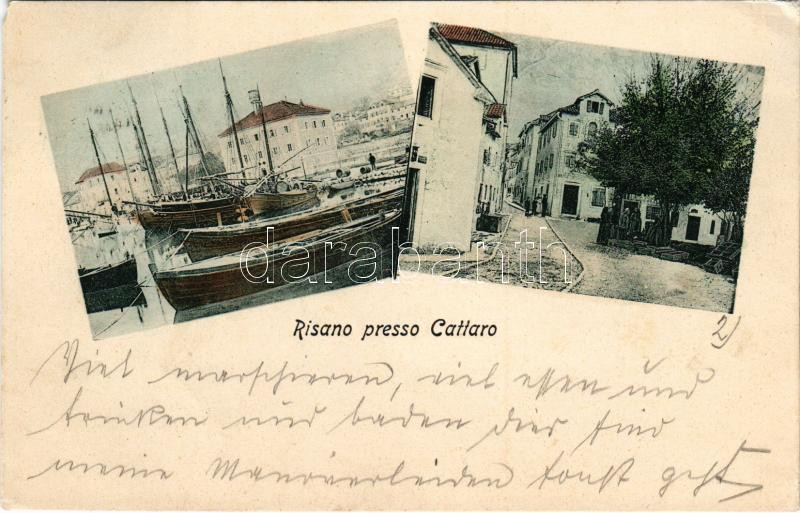 darabanth
Risano presso Cattaro
2)
Viel marschieren, viel essen und
trinken und baden dies sind
meine Manöverleiden sonst geht